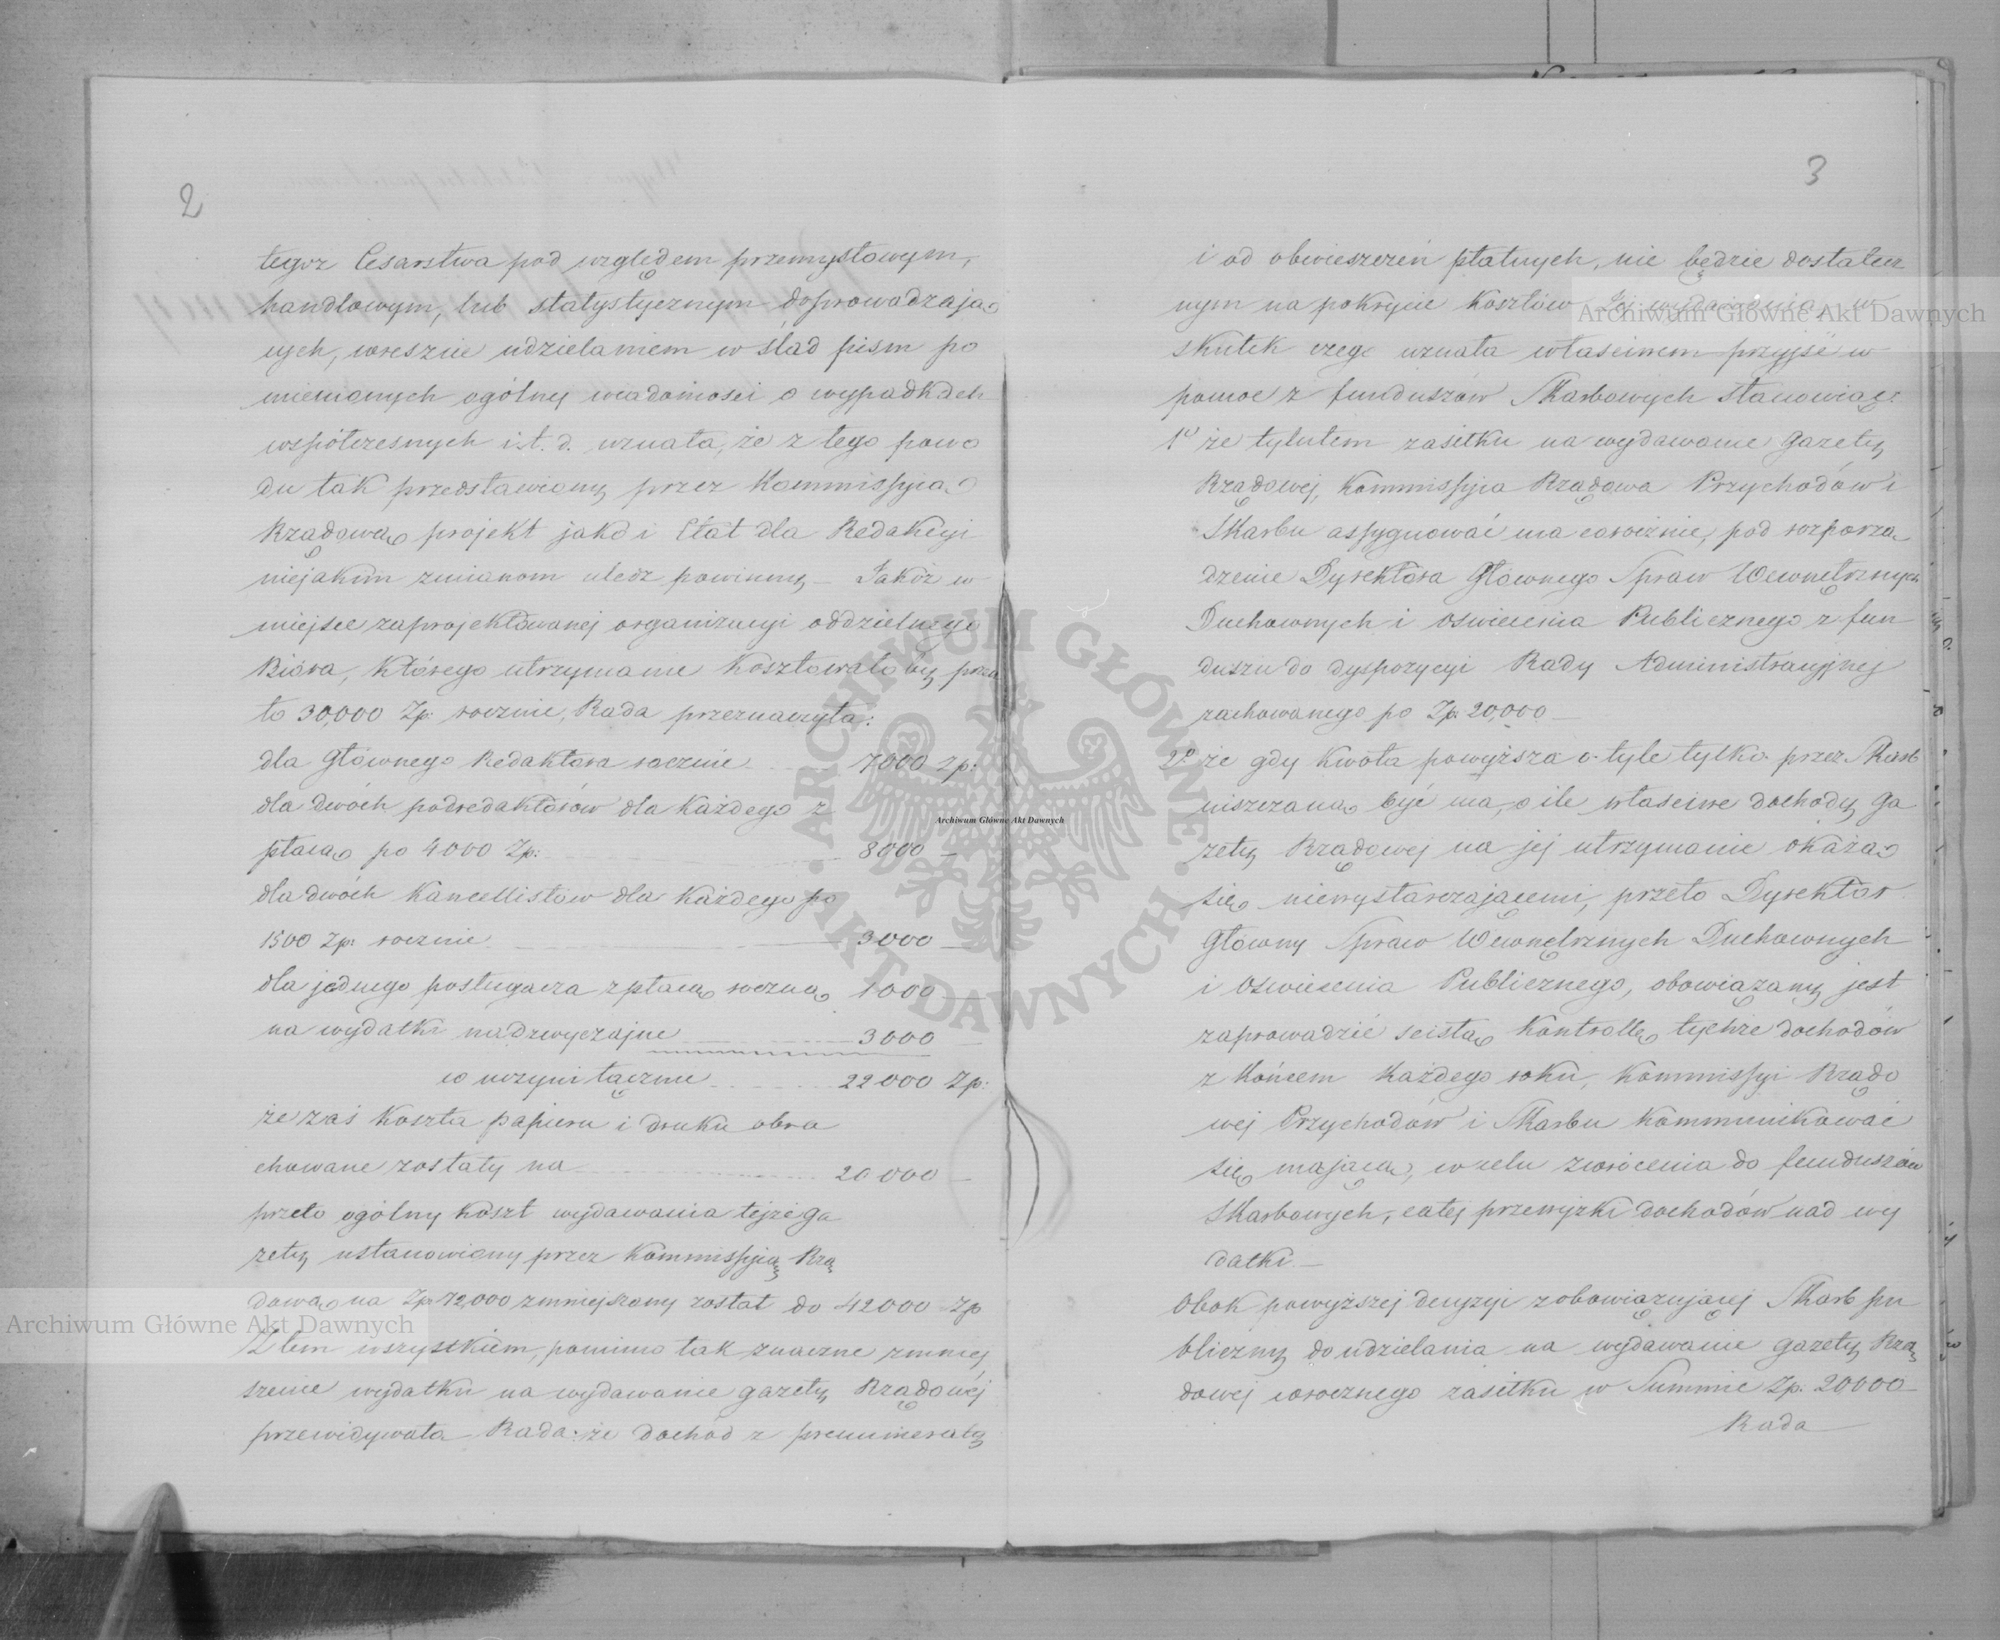 2
tegoż Cesarstwa pod względem przemysłowym,
handlowym, lub statystycznym doprowadzają
cych, wreszcie udzielaniem w ślad pism po
mienionych ogólnej wiadomości o wypadkach
współczesnych i t. d. uznała, że z tego powo
du tak przedstawiony przez Kommissyią
Rządową projekt jako i Etat dla Redakcyi
niejakim zmianom uledz powinny — Jakóż w
miejsce zaprojektowanej organizacyi oddzielnego
Bióra, którego utrzymanie kosztowało by prze
to 30,000 Zp: rocznie, Rada przeznaczyła:
dla Głównego Redaktora rocznie 7000 Zp:
dla dwóch podredaktorów dla każdego z
płacą po 4000 Zp: 8000 —
dla dwóch Kancellistów dla każdego po
1500 Zp: rocznie 3000 —
dla jednego posługacza z płacą roczną 1000 —
na wydatki nadzwyczajne 3000 —
co uczyni łącznie 22000 Zp:
że zaś koszta papieru i druku obra
chowane zostały na 20000 —
przeto ogólny koszt wydawania tejże ga
zety ustanowiony przez Kommissyią Rzą
dową na Zp: 72,000 zmniejszony został do 42000 Zp
Z tem wszystkiem, pomimo tak znaczne zmniej
szenie wydatku na wydawanie gazety Rządowej
przewidywała Rada: że dochód z prenumeraty
3
i od obwieszczeń płatnych, nie będzie dostatecz
nym na pokrycie kosztów Jej wydawania, w
skutek czego uznała właściwem przyjść w
pomoc z funduszów Skarbowych stanowiąc:
1º że tytułem zasiłku na wydawanie Gazety
Rządowej, Kommissyia Rządowa Przychodów i
Skarbu assygnować ma corocznie, pod rozporzą
dzenie Dyrektora Głównego Spraw Wewnętrznych
Duchownych i Oświecenia Publicznego z fun
duszu do dyspozycyi Rady Administracyjnej
zachowanego po Zp: 20,000 —
2º że gdy kwota powyższa o tyle tylko przez Skarb
uiszczaną być ma, o ile właściwe dochody Ga
zety Rządowej na jej utrzymanie okażą
się niewystarczającemi, przeto Dyrektor
Główny Spraw Wewnętrznych Duchownych
i Oświecenia Publicznego, obowiązany jest
zaprowadzić ścisłą Kontrollę tychże dochodów
z końcem każdego roku, Kommissyi Rządo
wej Przychodów i Skarbu kommunikować
się mającą, w celu zwrócenia do funduszów
Skarbowych, całej przewyżki dochodów nad wy
datki. —
Obok powyższej decyzyi zobowiązującej Skarb pu
bliczny do udzielania na wydawanie gazety Rzą
dowej corocznego zasiłku w Summie Zp: 20000 —
Rada
Archiwum Główne Akt Dawnych
Archiwum Główne Akt Dawnych
Archiwum Główne Akt Dawnych
ARCHIWUM GŁÓWNE · AKT DAWNYCH ·